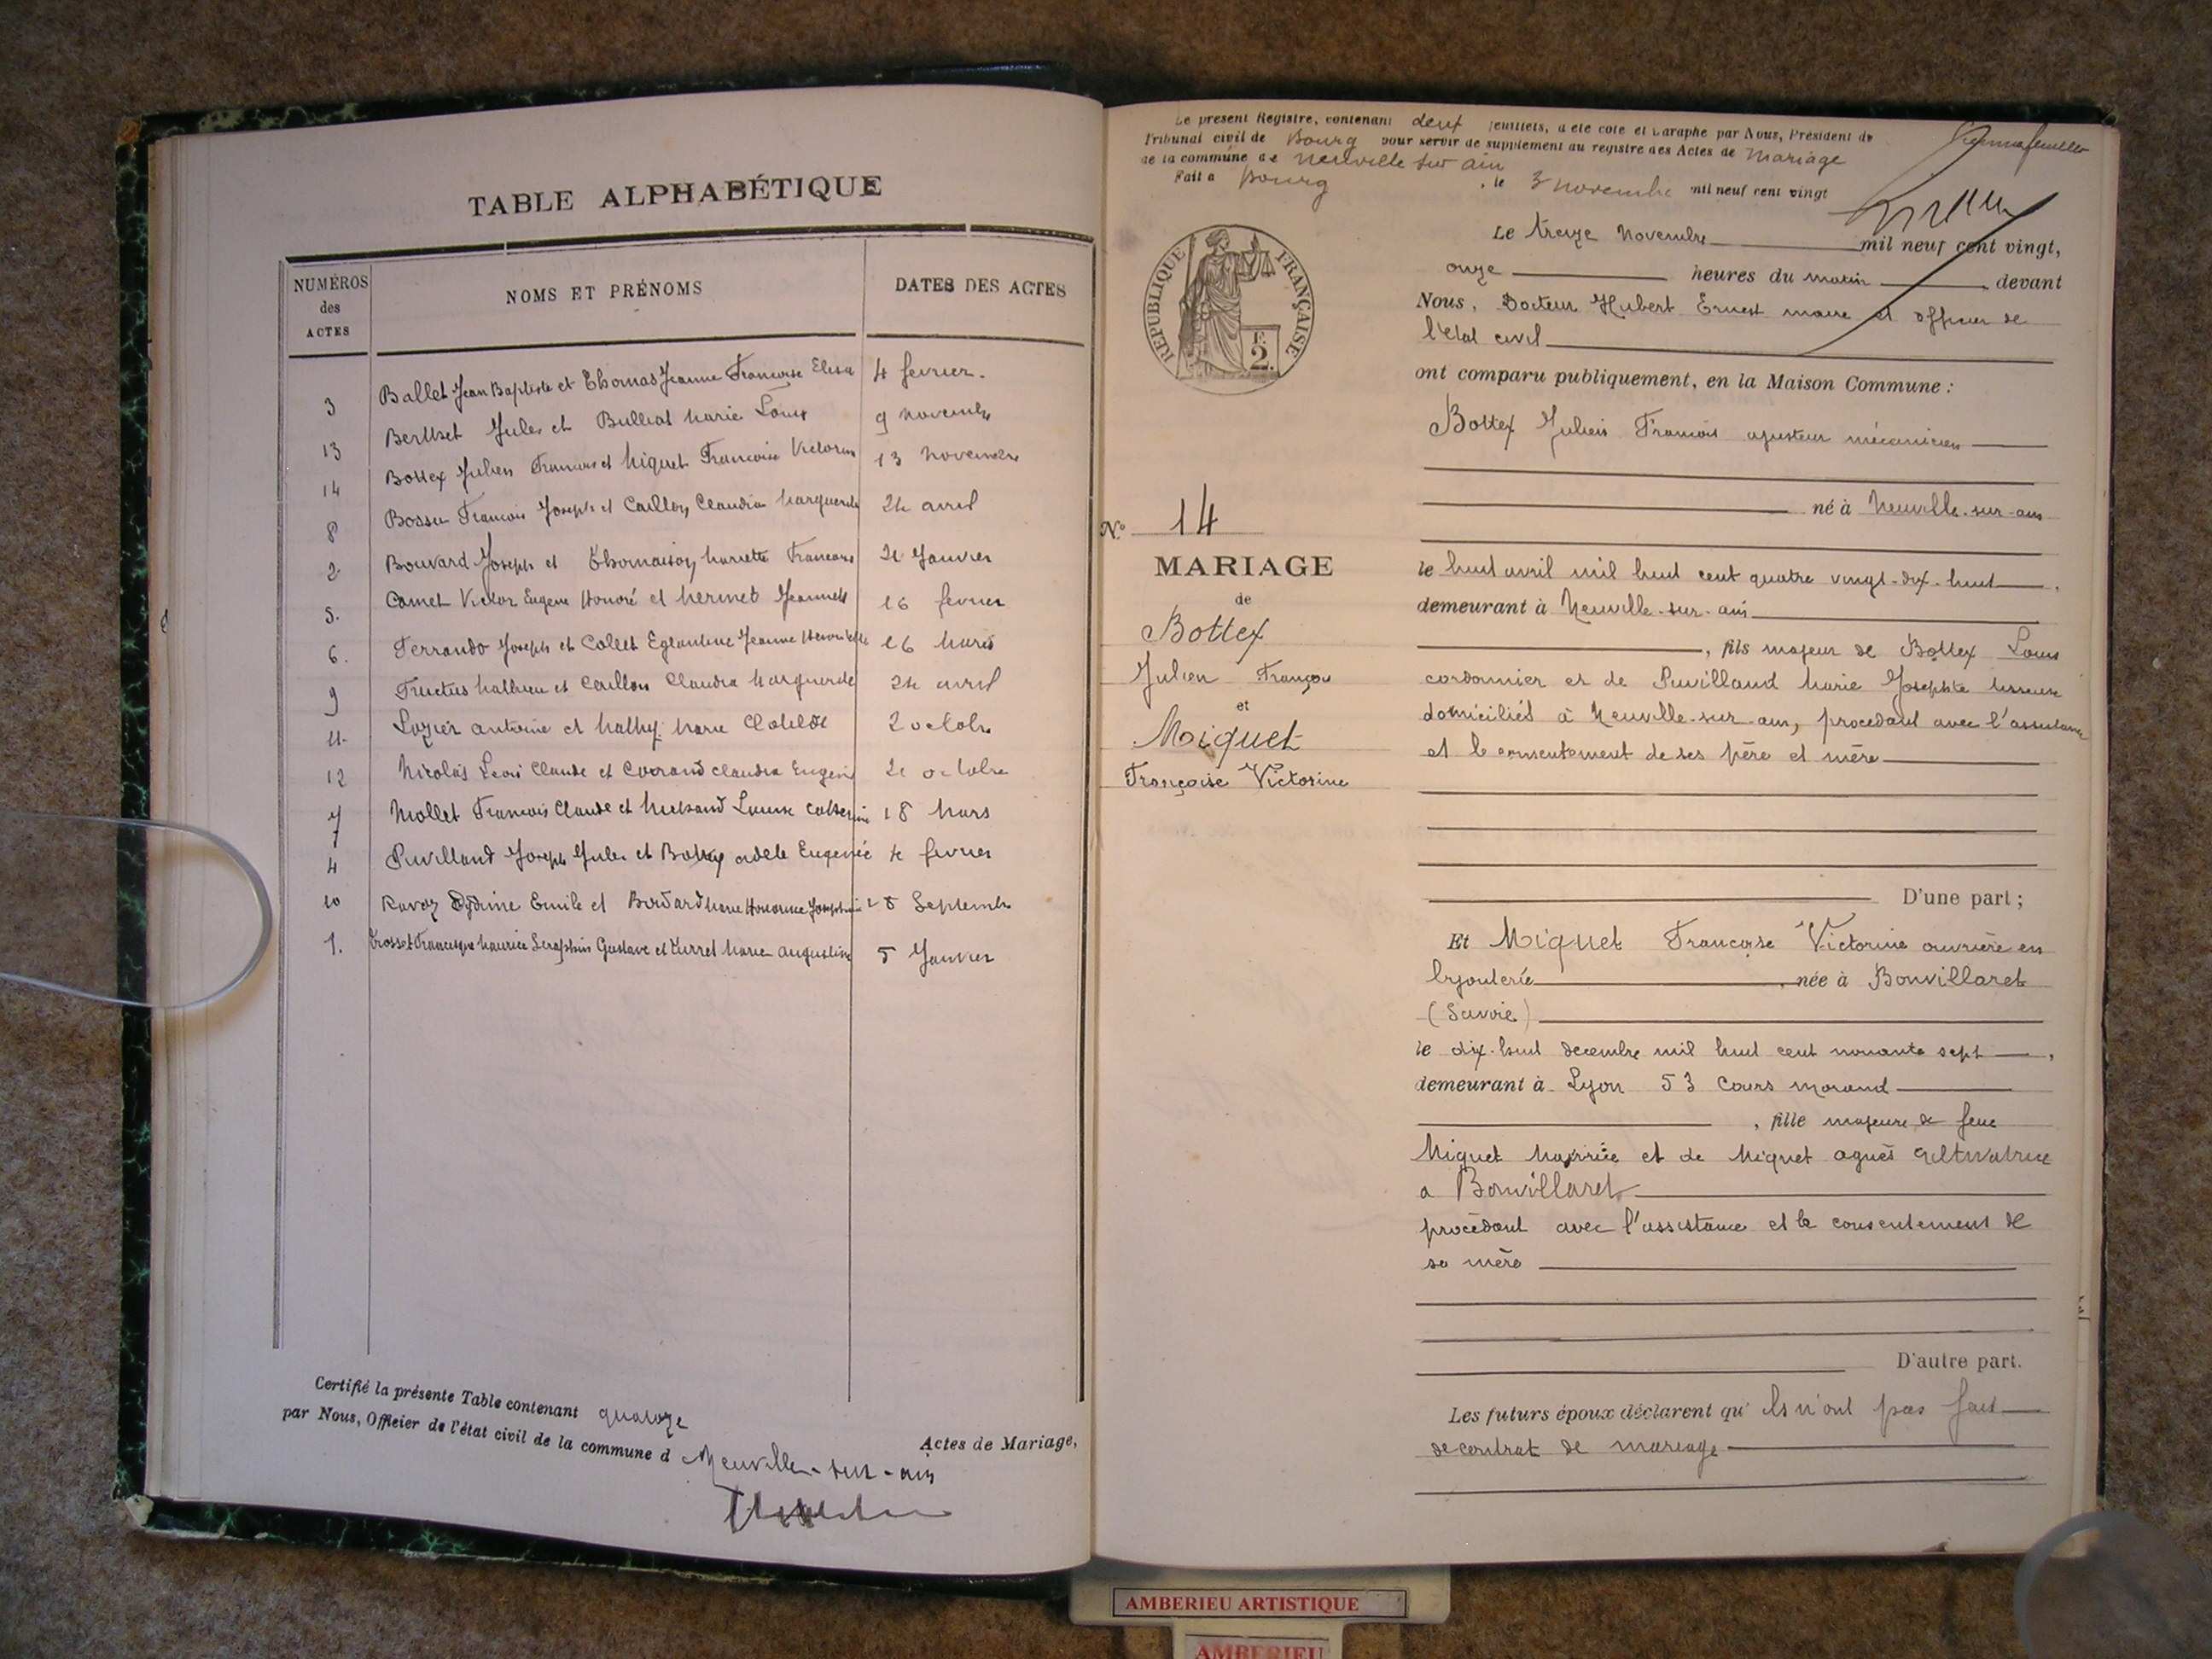 TABLE ALPHABÉTIQUE
NUMÉROS des ACTES
NOMS ET PRÉNOMS
DATES DES ACTES
3 Ballet Jean Baptiste et Thomas Jeanne Françoise Elisa 4 fevrier.
13 Berthet Jules et Bulliat Marie Louis 9 novembre
14 Bottex Julien François et Miquet Françoise Victorine 13 Novembre
8 Bossu François Joseph et Caillon Claudia Marguerite 24 avril
2 Bouvard Joseph et Thomasson Mariette Françoise Janvier
5. Comet Victor Eugène Honoré et Mermet Jeannette 16 fevrier
6. Ferrando Joseph et Collet Eglantine Jeanne Henriette 16 Mars
9 Fructus Mathieu et Caillon Claudia Marguerite 24 avril
11. Lozier antoine et Mathy Marie Clotilde 2 octobre
12 Nicolas Leon Claude et claudia Eugenie octobre
7 Mollet François Claude et Louise Catherine 18 Mars
4 Puvilland Joseph Jules et Bottex adele Eugenie 4 fevrier
10 Ravoz Emile et Marie Honorine Josephine Septembre
1. Maurice Seraphin Gustave et Marie augustine 5 Janvier
Certifié la présente Table contenant quatorze Actes de Mariage,
par Nous, Officier de l'état civil de la commune d Neuville-sur-ain
Le présent Registre, contenant deux feuillets, a été coté et paraphé par Nous, Président du
Tribunal civil de Bourg pour servir de supplément au registre des Actes de Mariage
de la commune de Neuville sur ain
Fait à Bourg, le 3 Novembre mil neuf cent vingt
RÉPUBLIQUE FRANÇAISE
2 F.
N° 14
MARIAGE
de
Bottex
Julien François
et
Miquet
Françoise Victorine
Le treize Novembre mil neuf cent vingt,
onze heures du matin, devant
Nous, Docteur Hubert Ernest maire et officier de
l'état civil
ont comparu publiquement, en la Maison Commune :
Bottex Julien François ajusteur mécanicien
né à Neuville-sur-ain
le huit avril mil huit cent quatre vingt-dix-huit,
demeurant à Neuville-sur-ain
, fils majeur de Bottex Louis
cordonnier et de Puvilland Marie Josephte tisseuse
domiciliés à Neuville-sur-ain, procédant avec l'assistance
et le consentement de ses père et mère
D'une part ;
Et Miquet Françoise Victorine ouvrière en
bijouterie, née à Bonvillaret
(Savoie)
le dix-huit decembre mil huit cent nonante sept,
demeurant à Lyon 53 Cours Morand
, fille majeure de feue
Miquet et de Miquet agnès cultivatrice
a Bonvillaret
procédant avec l'assistance et le consentement de
sa mère
D'autre part.
Les futurs époux déclarent qu' ils n'ont pas fait
de contrat de mariage
AMBERIEU ARTISTIQUE
AMBERIEU